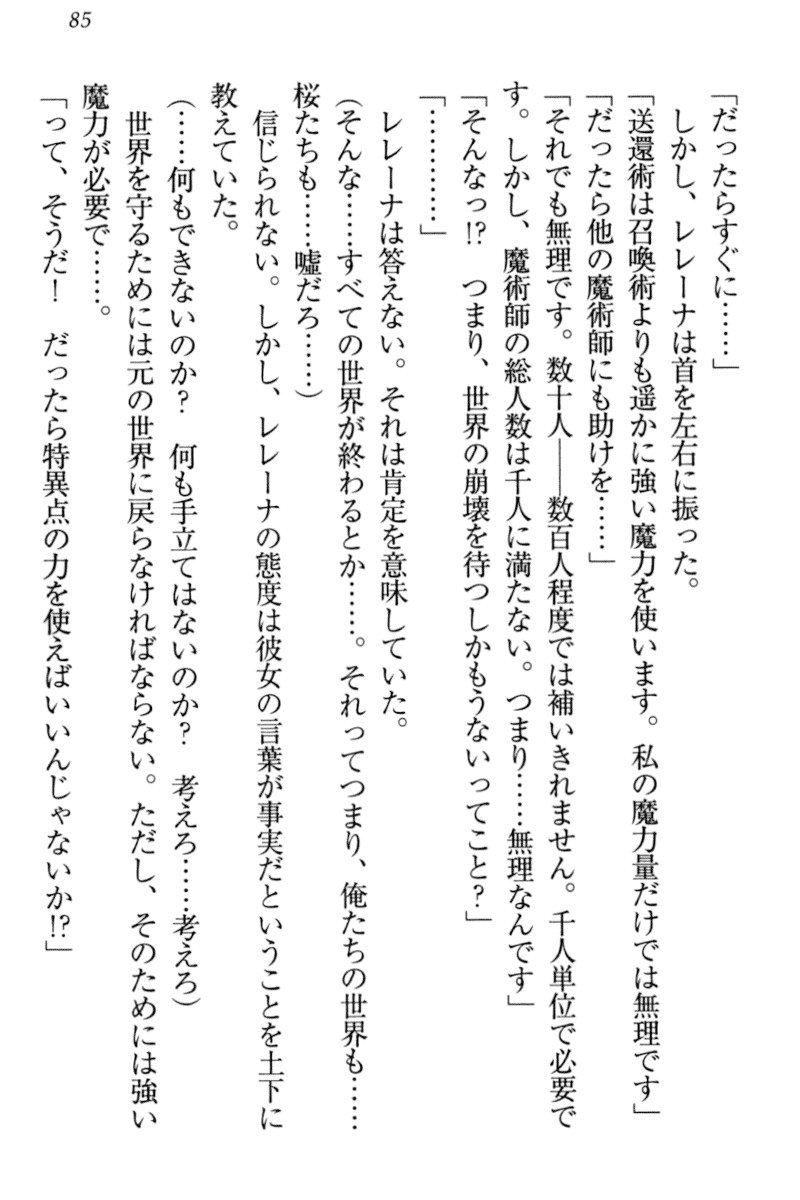 85
「だったらすぐに……」
　しかし、レレーナは首を左右に振った。
「送還術は召喚術よりも遥かに強い魔力を使います。私の魔力量だけでは無理です」
「だったら他の魔術師にも助けを……」
「それでも無理です。数十人――数百人程度では補いきれません。千人単位で必要で
す。しかし、魔術師の総人数は千人に満たない。つまり……無理なんです」
「そんなっ!?　つまり、世界の崩壊を待つしかもうないってこと？」
「…………」
　レレーナは答えない。それは肯定を意味していた。
（そんな……すべての世界が終わるとか……。それってつまり、俺たちの世界も……
桜たちも……嘘だろ……）
　信じられない。しかし、レレーナの態度は彼女の言葉が事実だということを土下に
教えていた。
（……何もできないのか？　何も手立てはないのか？　考えろ……考えろ）
　世界を守るためには元の世界に戻らなければならない。ただし、そのためには強い
魔力が必要で……。
「って、そうだ！　だったら特異点の力を使えばいいんじゃないか!?」